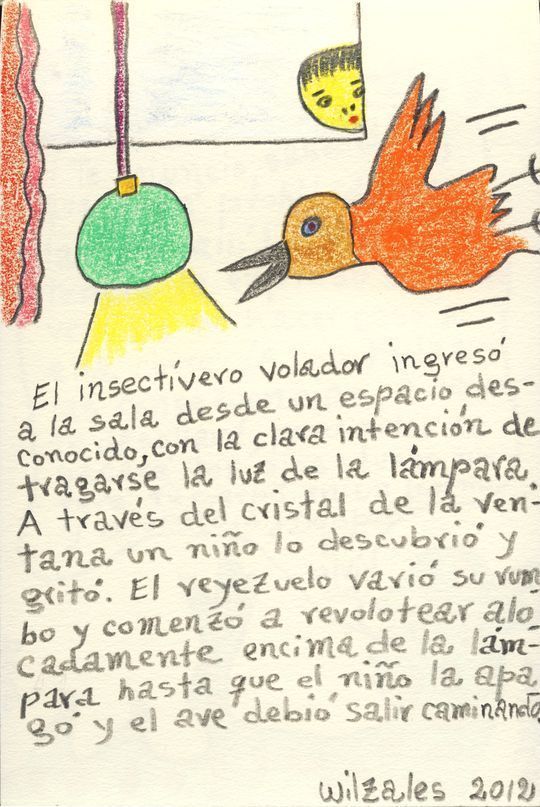 El insectívero volador ingresó
a la sala desde un espacio, des-
conocido, con la clara intención de
tragarse la luz de la lámpara.
A través del cristal de la ven-
tana un niño lo descubrió y
gritó. El reyezuelo varió su rum
bo y comenzó a revolotear alo-
cadamente encima de la lám-
para hasta que el niño la apa
gó y el ave debió salir caminando
Wilzales 2012